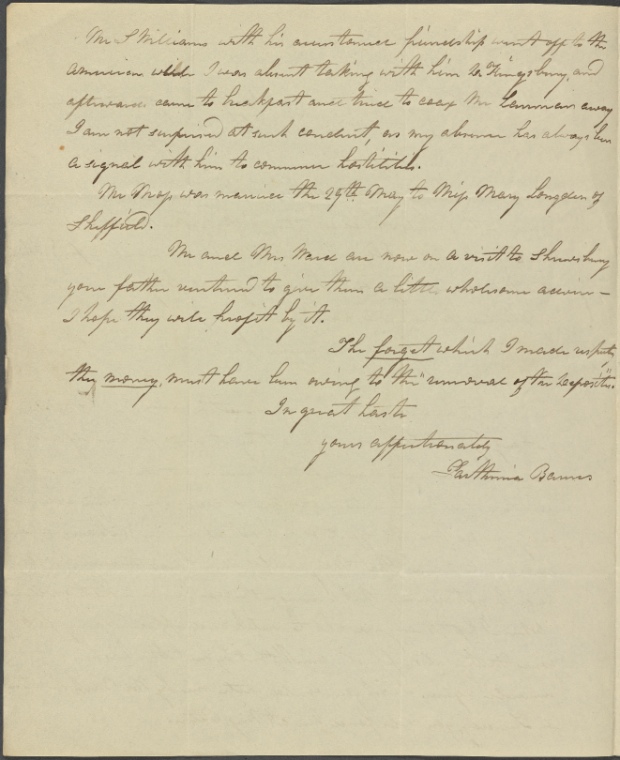 Mr S Williams with his accustomed friendship went off to the
American while I was absent taking with him Dr Kingsbury, and
afterwards came to breakfast and tried to coax Mr away
I am not surprised at such conduct, as my absence has always been
a signal with him to commence hostilities.
Mr was married the 29th May to Miss Mary Longdon of
Sheffield.
Mr and Mrs Ward are now on a visit to Shrewsbury
your father ventured to give them a little wholesome advice –
I hope they will profit by it.
The forget which I made respecting
the money, must have been owing to the "removal of the deposits".
In great haste
yours affectionately
Parthenia Barnes